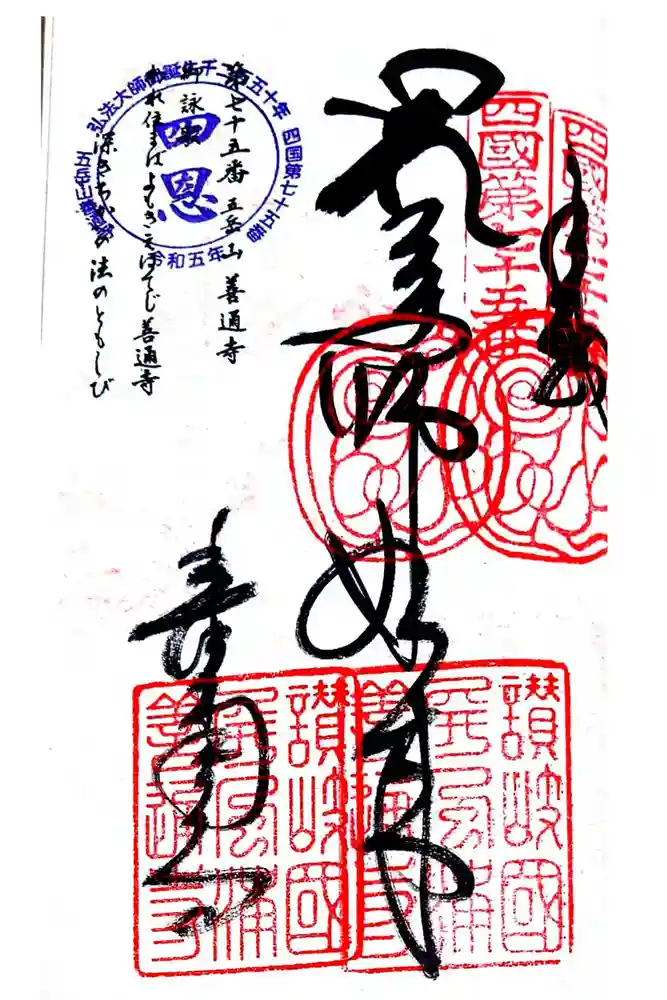 奉納
薬師如来
善通寺
四國第七十五番
四國第七十五番
讃岐國
讃岐國
弘法大師御誕生千二百五十年
四国第七十五番
五岳山善通寺
令和五年
四恩
第七十五番 五岳山 善通寺
御詠歌
われ住まばよもきえはてじ善通寺
深きちかひの法のともしび